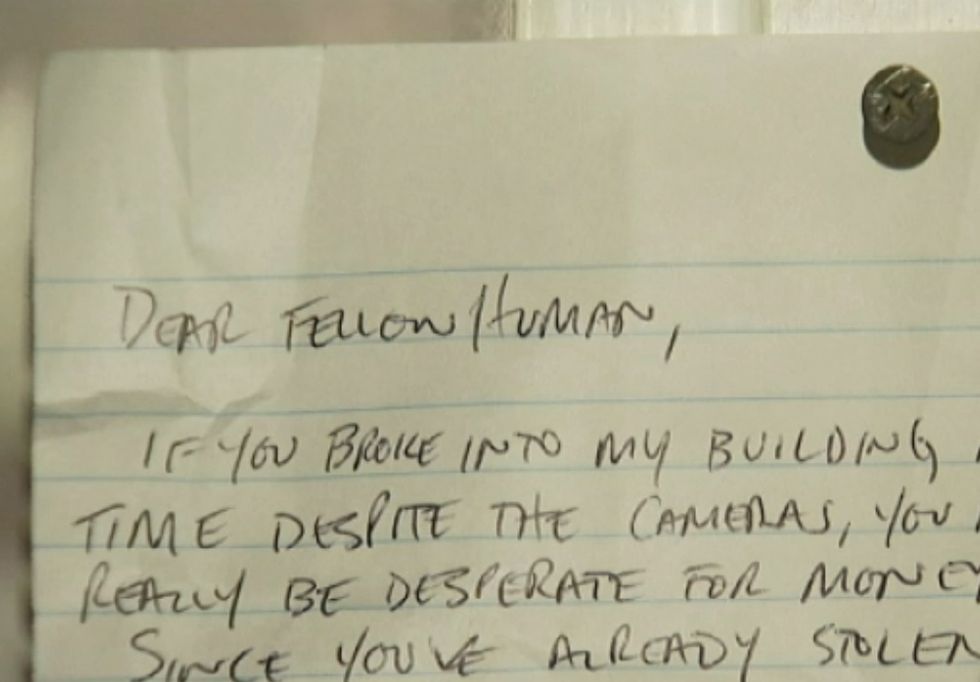 DEAR FELLOW HUMAN,
IF YOU BROKE INTO MY BUILDING
TIME DESPITE THE CAMERAS, YOU
REALLY BE DESPERATE FOR MONEY
SINCE YOU'VE ALREADY STOLEN